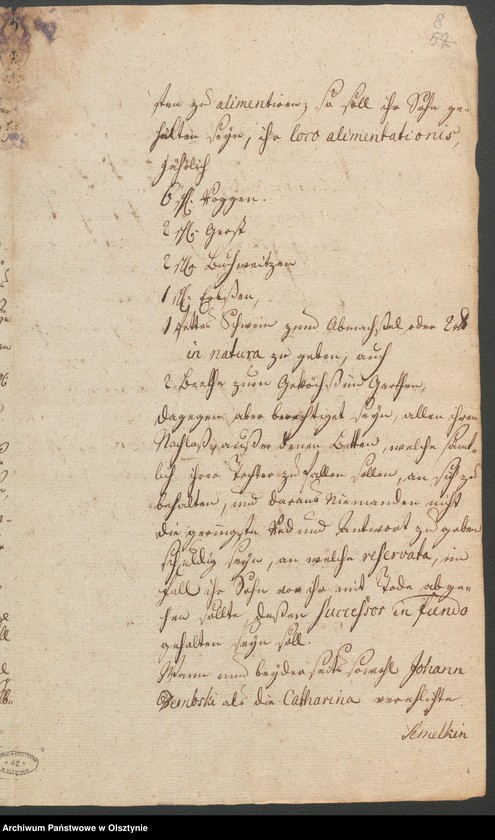 8
57
sten zu alimentiren; so soll ihr Sohn ge-
halten seyn, ihr loco alimentationis,
jährlich
6 sfl. Roggen.
2 sfl. Gerst
2 sfl. Buchweitzen
1 sfl. Erbßen,
1 fettes Schwein zum oder 2
in natura zu geben, auch
2 Beethe zum Geköchß im Garthen,
dagegen aber berechtiget seyn, allen ihren
Nachlaß, außer denen Betten, welche sämt-
lich ihrer Tochter zu fallen sollen, an sich zu
behalten, und daraus Niemanden nicht
die geringste Red und Antwort zu geben
schuldig seyn, an welche reservata, im
fall ihr Sohn vor ihr mit Tode abge-
hen sollte, deßen Successor in fundo
gehalten seyn soll.
Wann nun beyderseits sowohl Johann
Dembski als die Catharina verehlichte
Semelkin
42
Archiwum Państwowe w Olsztynie